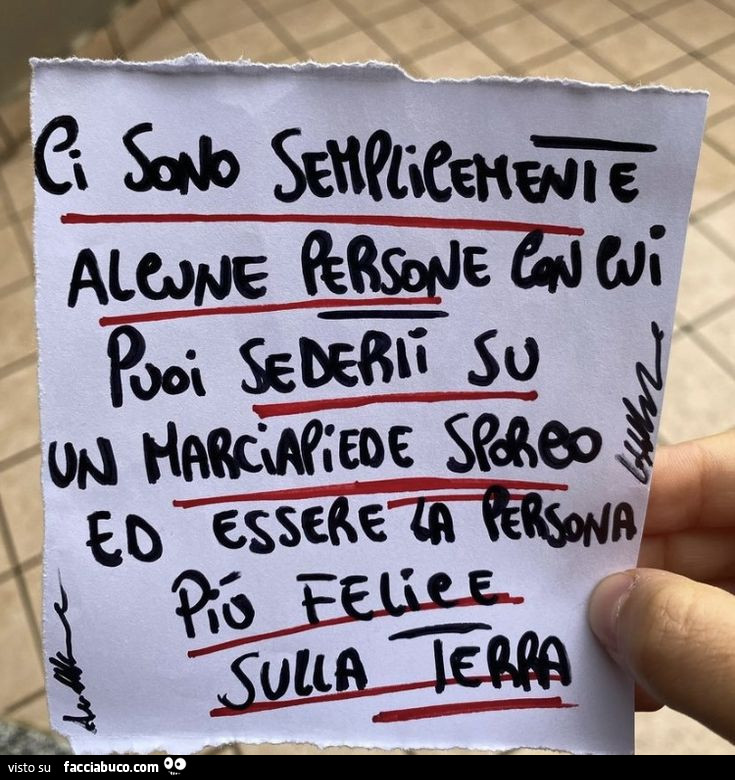 Ci SONO SEMPLiCEMENTE
ALCUNE PERSONE CON CUi
PUOi SEDERTi SU
UN MARCiAPiEDE SPORCO
ED ESSERE LA PERSONA
PiÚ FELiCE
SULLA TERRA
visto su facciabuco.com